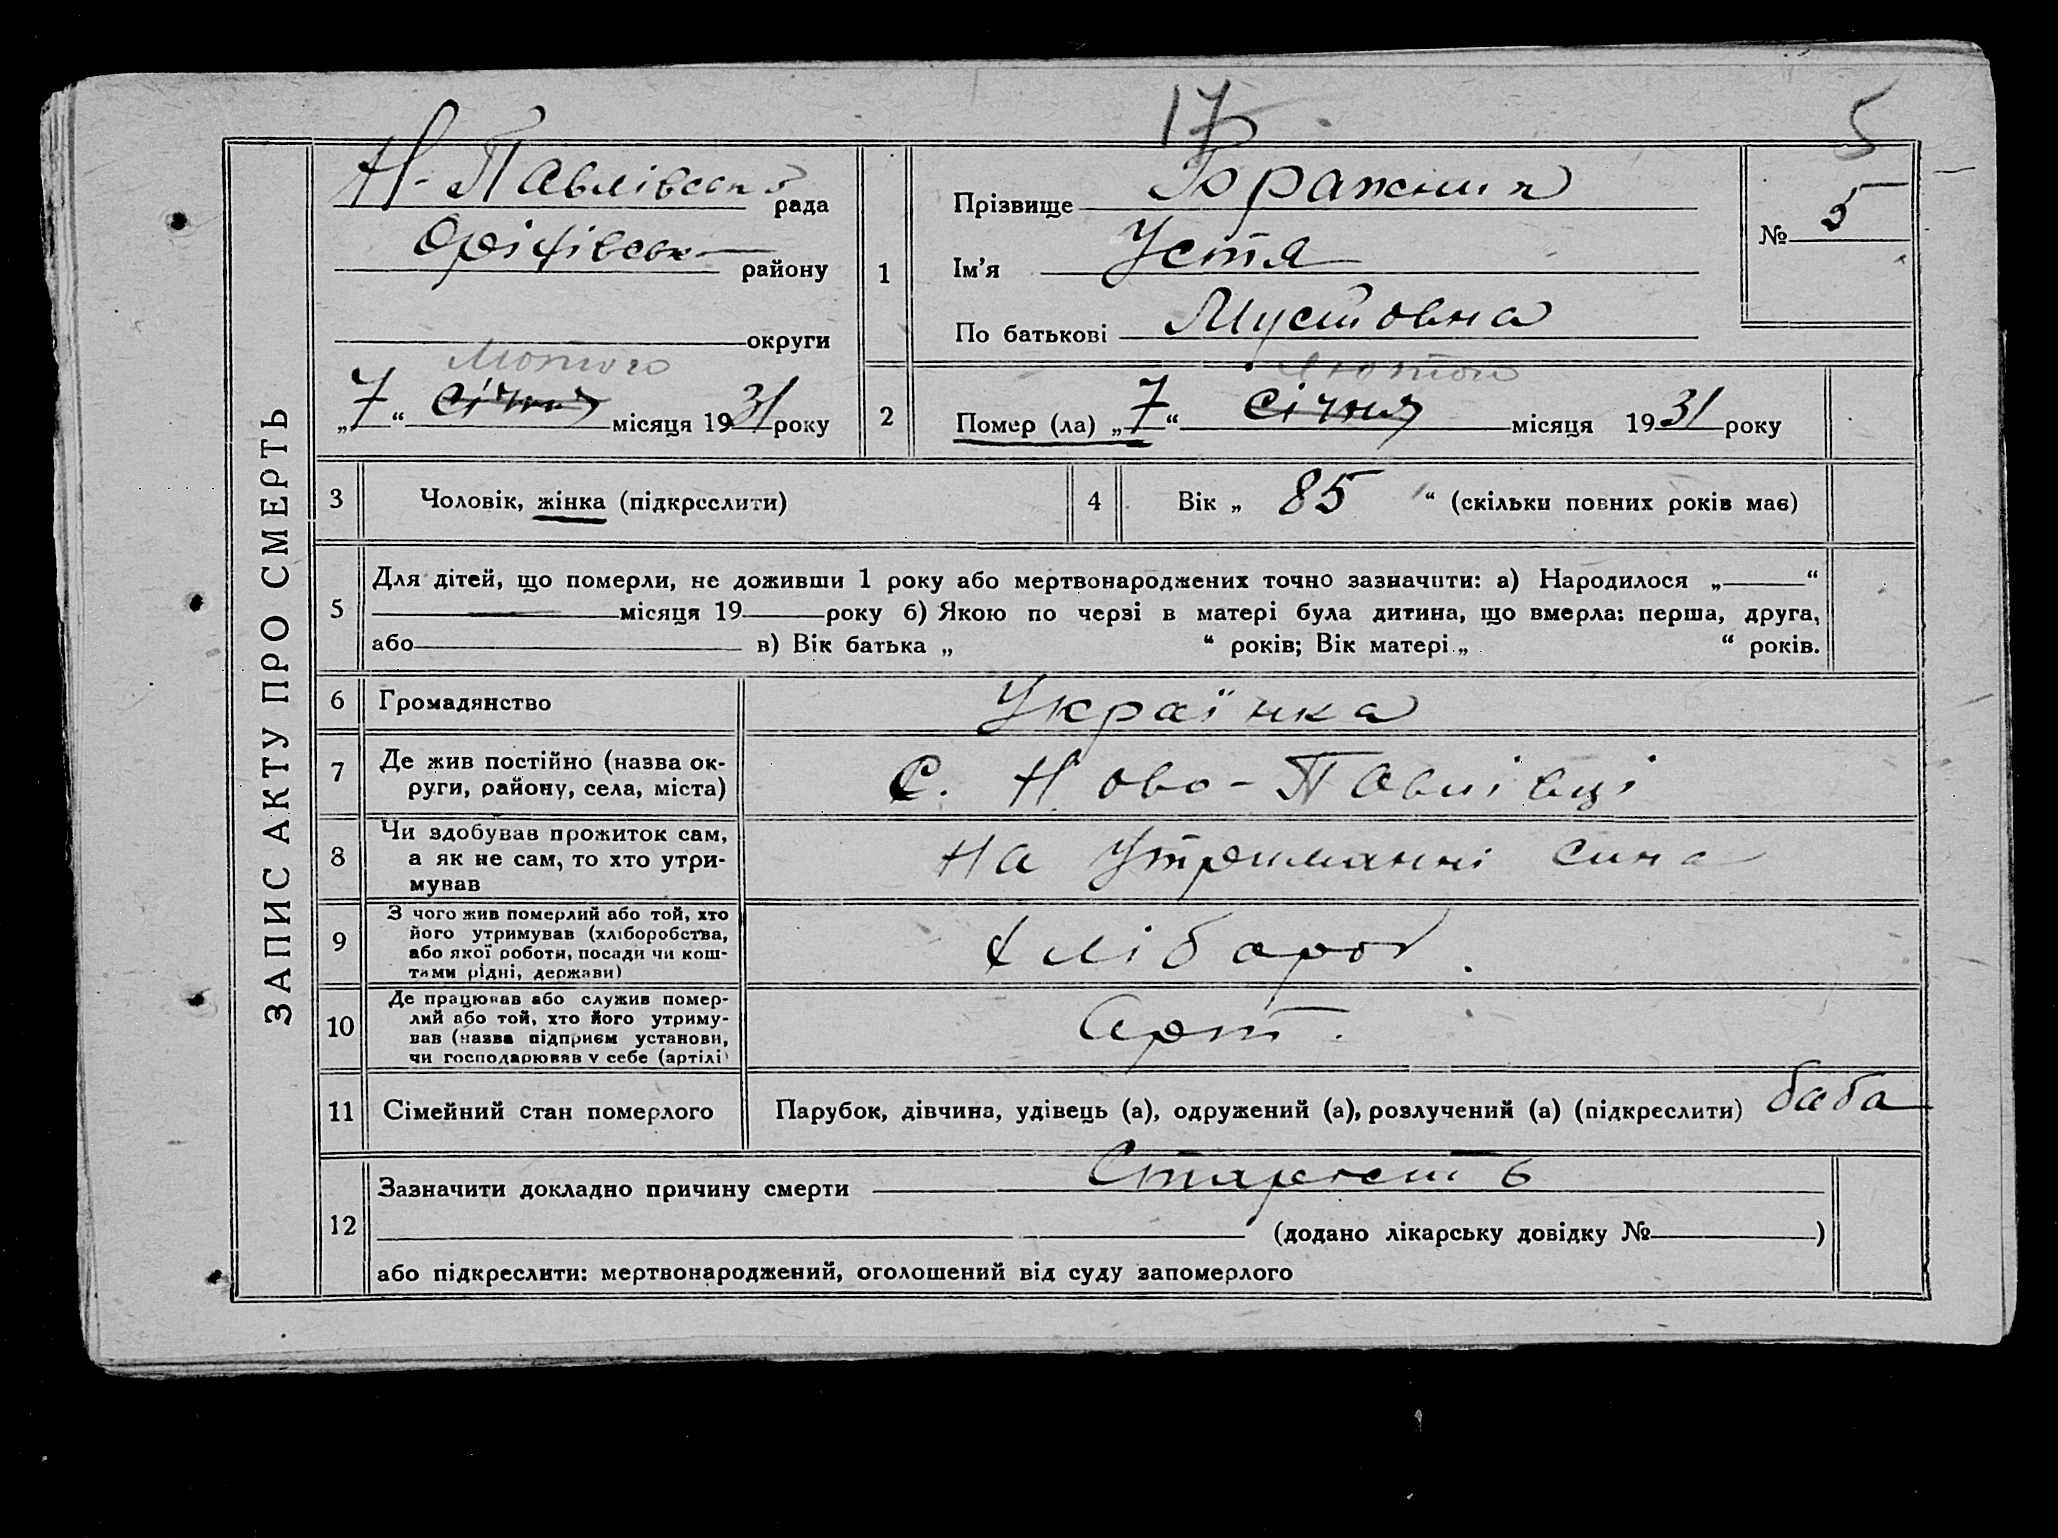 17
5
ЗАПИС АКТУ ПРО СМЕРТЬ
Н-Павлівськ рада
Оріхівськ району
округи
Лютого
„7“ січня місяця 1931 року
1
Прізвище Бражник
Ім’я Устя
По батькові
№ 5
2
Лютого
Помер (ла) „7“ січня місяця 1931 року
3 Чоловік, жінка (підкреслити)
4 Вік „ 85 “ (скільки повних років має)
5
Для дітей, що померли, не доживши 1 року або мертвонароджених точно зазначити: а) Народилося „ “
місяця 19 року б) Якою по черзі в матері була дитина, що вмерла: перша, друга,
або в) Вік батька „ “ років; Вік матері „ “ років.
6 Громадянство Українка
7 Де жив постійно (назва ок-
руги, району, села, міста)
С. Ново-Павлівці
8 Чи здобував прожиток сам,
а як не сам, то хто утри-
мував
На утриманні сина
9 З чого жив померлий або той, хто
його утримував (хліборобства,
або якої роботи, посади чи кош-
тами рідні, держави)
хлібороб.
10 Де працював або служив помер-
лий або той, хто його утриму-
вав (назва підприєм установи,
чи господарював у себе (артілі)
Арт.
11 Сімейний стан померлого
Парубок, дівчина, удівець (а), одружений (а), розлучений (а) (підкреслити) баба
12
Зазначити докладно причину смерти Старость
(додано лікарську довідку № )
або підкреслити: мертвонароджений, оголошений від суду запомерлого